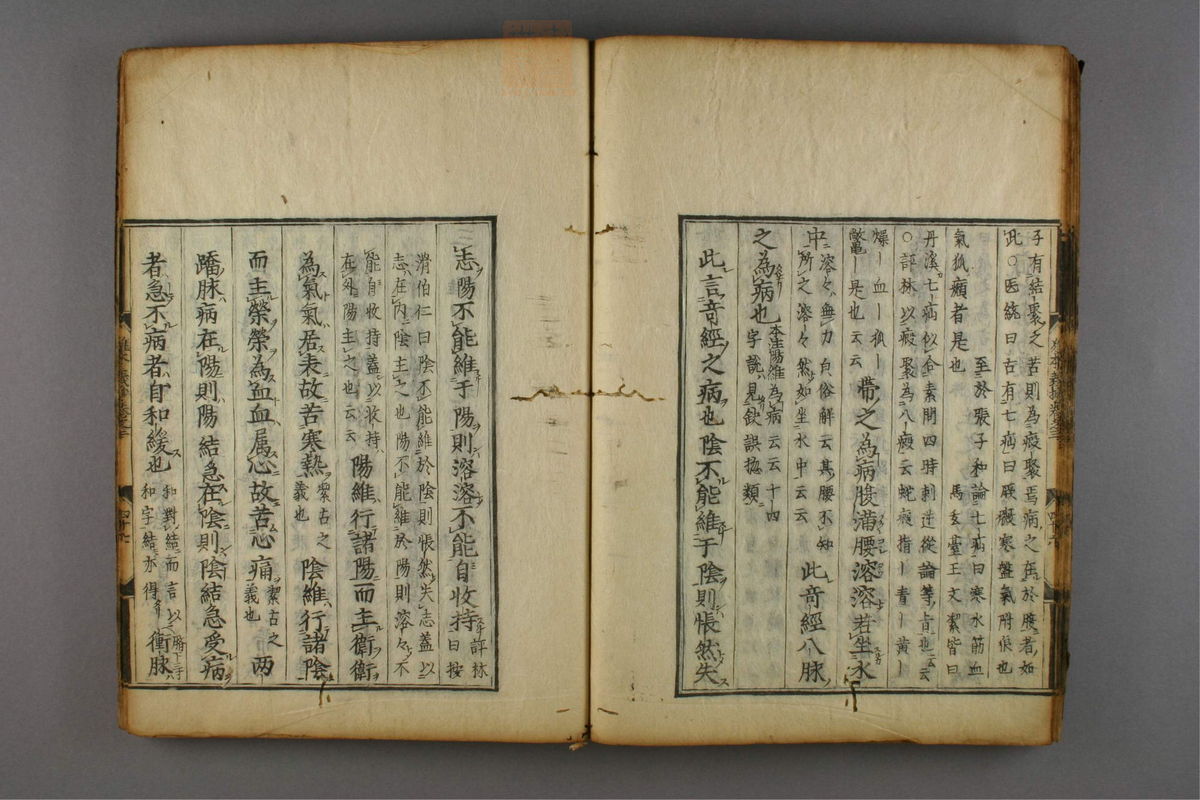 子有結聚之苦則為瘕聚焉病之在於腹者如
此○医統曰古有七疝曰厥癥寒盤氣附狼也
至於張子和論七疝曰寒水筋血
氣狐癩者是也 馬玄臺王文絜皆曰
丹溪七疝似合素問四時刺逆從論等肯也云云
○評林以瘕聚為八瘕云蛇瘕指青黃
燥血狐
鼈是也云云 帶之為病腹滿腰溶溶若坐水
中溶々無力皃俗解云其腰不知所之溶々然如坐水中云云 此竒經八脉
之為病也本注陽維為病云云十四字說見欽誤揔類
此言竒經之病也陰不能維于陰則悵然失
志陽不能維于陽則溶溶不能自收持評林曰按
滑伯仁曰陰不能維於陰則悵然失志蓋以
志在内陰主之也陽不能維於陽則溶々不
能自收持蓋以收持
在外陽主之也云云 陽維行諸陽而主衛衛
為氣氣居表故苦寒熱絜古之義也 陰維行諸陰
而主榮榮為血血属心故苦心痛絜古之義也 两
蹻脉病在陽則陽結急在陰則陰結急受病
者急不病者自和緩也和對結而言以和字結亦得 衝脉